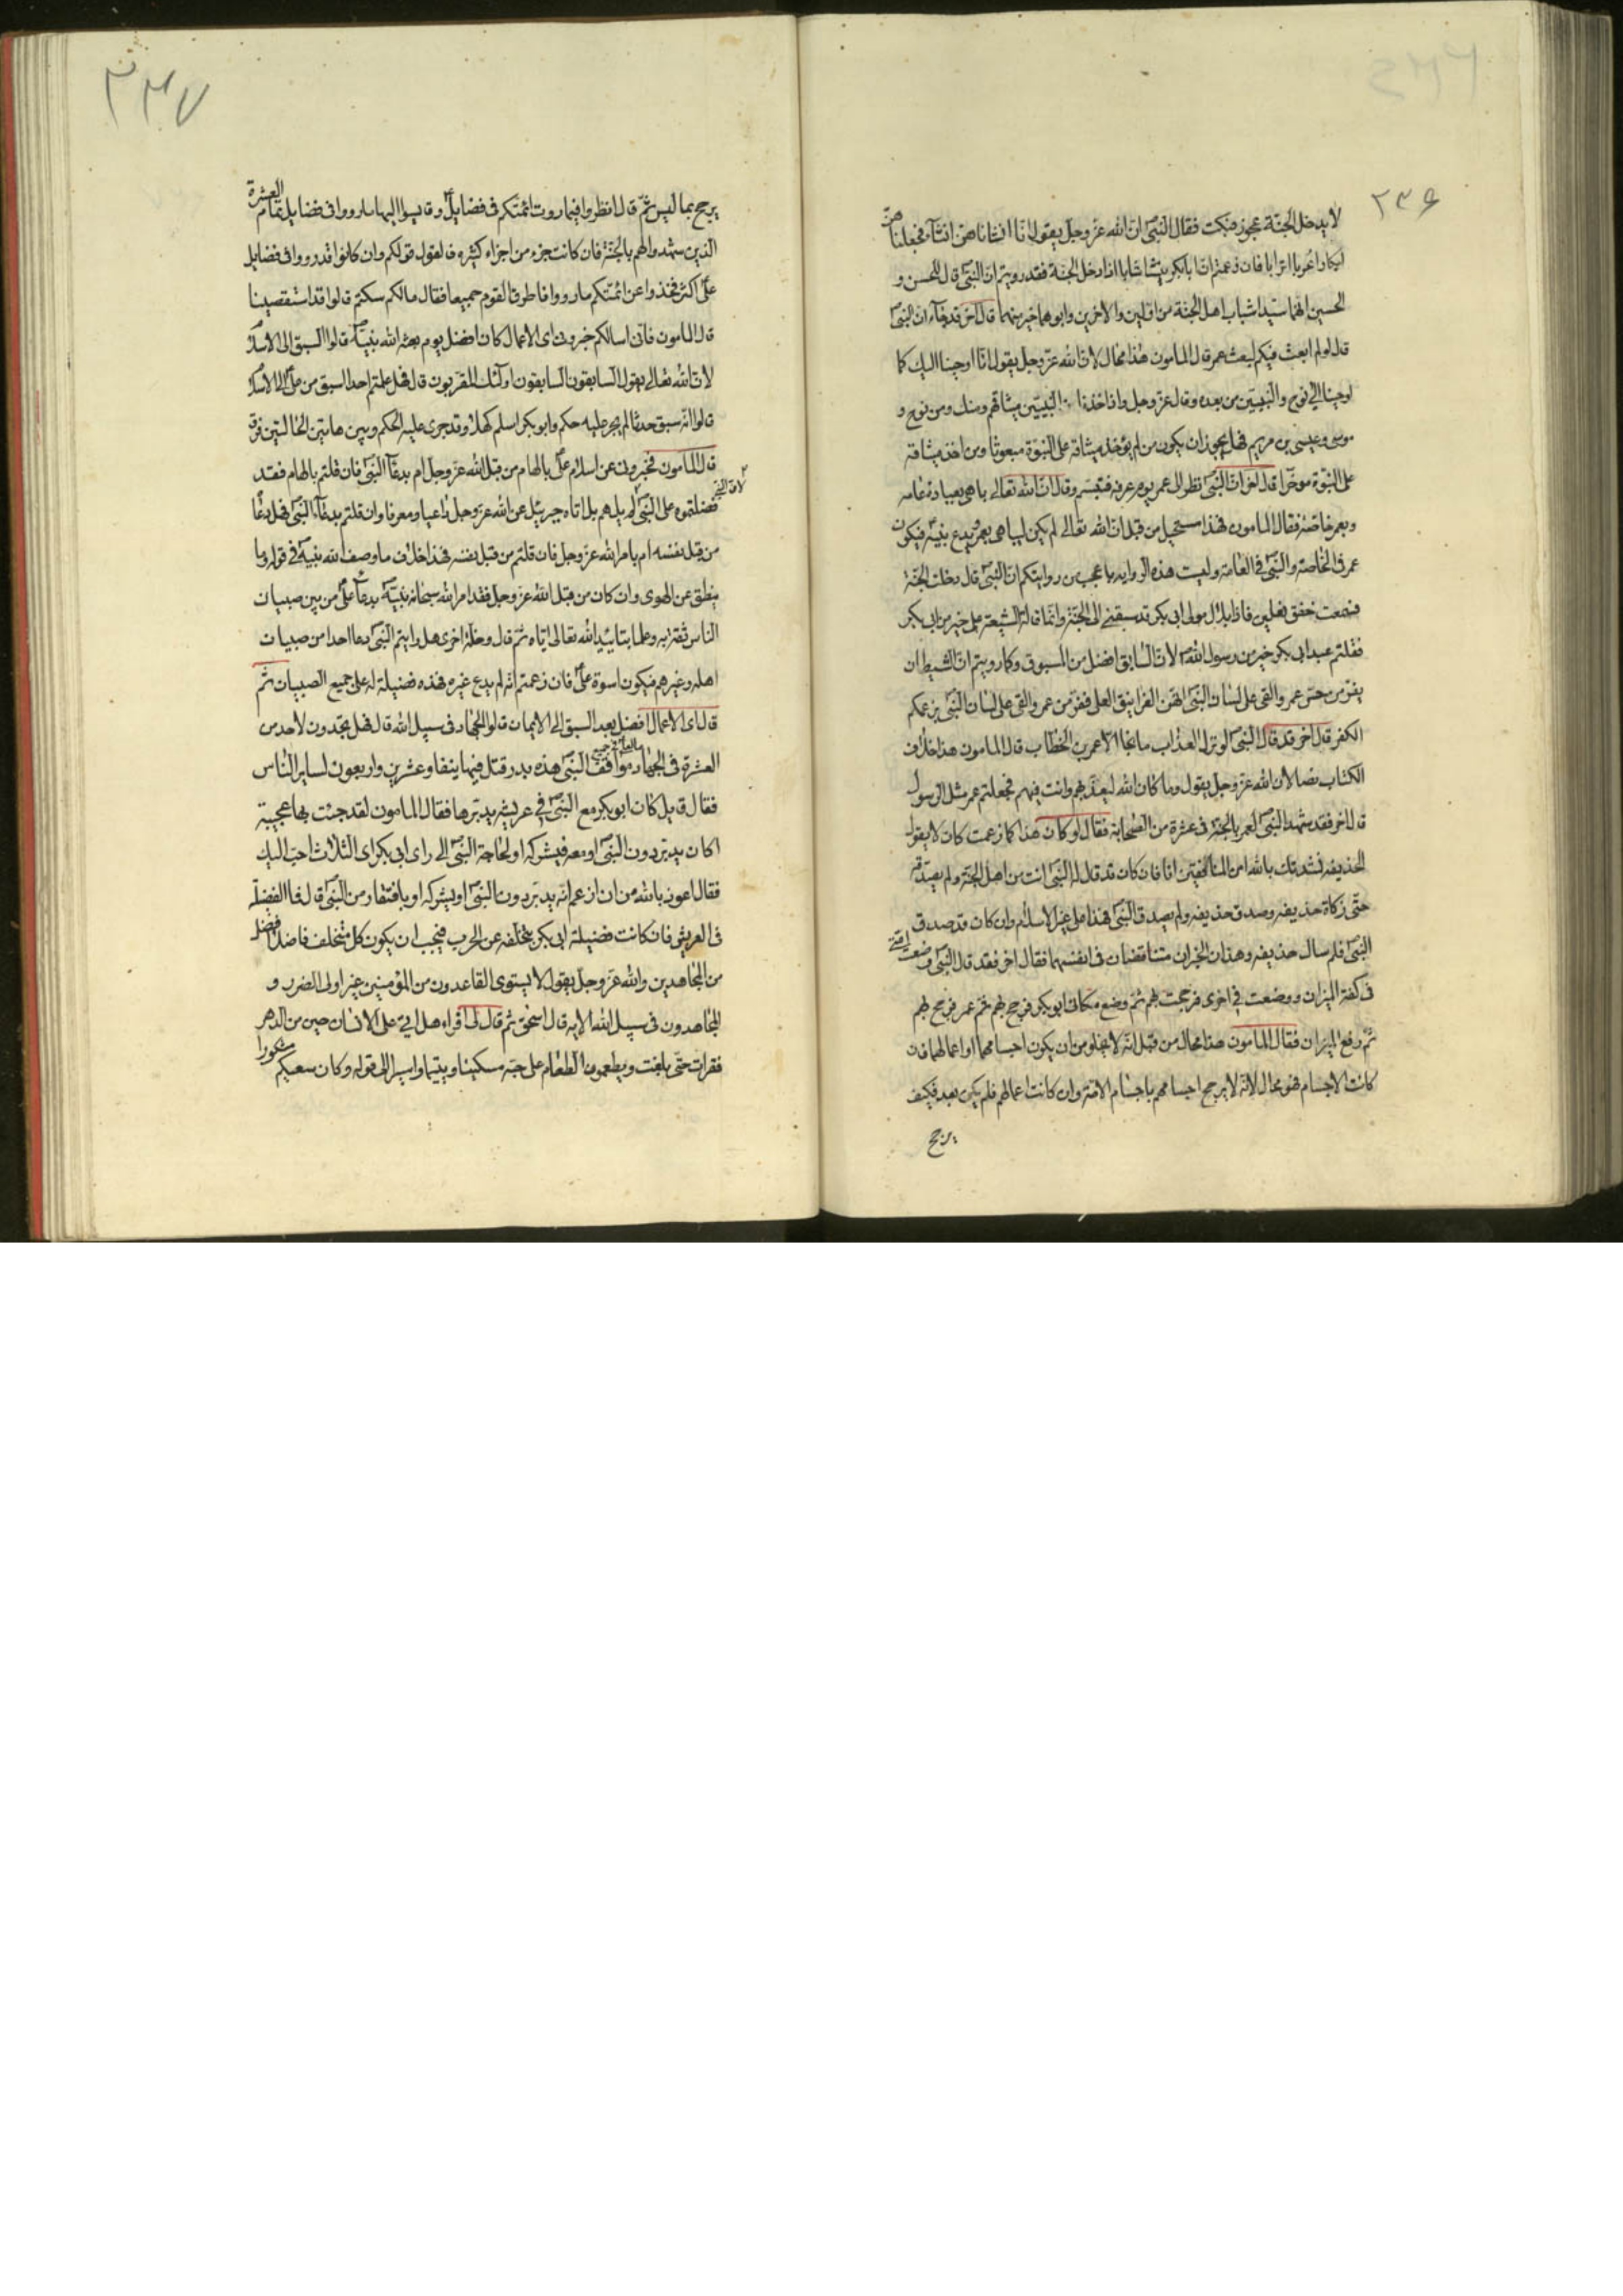 ٢٣۶
لا يدخل الجنة عجوز فبكت فقال النبى ص ان الله عز وجل يقول انا انشاناهن انشاء فجعلناهن
ابكارا عربا اترابا فان زعمتم ان ابا بكر ينشا شابا اذا دخل الجنة فقد رويتم ان النبى ص قال للحسن و
الحسين انهما سيدا شباب اهل الجنة من الاولين والاخرين وابوهما خير منهما قال اخر قد جاء ان النبى ص
قال لو لم ابعث فيكم لبعث عمر قال المامون هذا محال لان الله عز وجل يقول انا اوحينا اليك كما
اوحينا الى نوح والنبيين من بعده وقال عز وجل واذ اخذنا من النبيين ميثاقهم ومنك ومن نوح و
موسى وعيسى بن مريم فهل يجوز ان يكون من لم يؤخذ ميثاقه على النبوة مبعوثا ومن اخذ ميثاقه
على النبوة موخرا قال اخر ان النبى ص نظر الى عمر يوم عرفة فتبسم وقال ان الله تعالى باهى بعباده عامه
وبعمر خاصة فقال المامون فهذا مستحيل من قبل ان الله تعالى لم يكن ليباهى بعمر ويدع نبيه ص فيكون
عمر فى الخاصة والنبى ص فى العامة وليست هذه الروايه باعجب من روايتكم ان النبى ص قال دخلت الجنة
فسمعت خفق نعلين فاذا بلال مولى ابى بكر قد سبقنى الى الجنة وانما قالت الشيعة على خير من ابى بكر
فقلتم عبد ابى بكر خير من رسول الله ص لان السابق افضل من المسبوق وكما رويتم ان الشيطان
يفر من حس عمر والقى على لسان النبى ص انهن الغرانيق العلى ففر من عمر والقى على لسان النبى ص بزعمكم
الكفر قال اخر قد قال النبى ص لو نزل العذاب ما نجا الا عمر بن الخطاب قال المامون هذا خلاف
الكتاب نصا لان الله عز وجل يقول وما كان الله ليعذبهم وانت فيهم فجعلتم عمر مثل الرسول
قال اخر فقد شهد النبى ص لعمر بالجنة فى عشرة من الصحابة فقال لو كان هذا كما زعمت كان لا يقول
لحذيفه نشدتك بالله امن المنافقين انا فان كان قد قال له النبى ص انت من اهل الجنة ولم يصدقه
حتى زكاه حذيفه وصدق حذيفه ولم يصدق النبى ص فهذا على غير الاسلام وان كان قد صدق
النبى ص فلم سال حذيفه وهذان الخبران متناقضان فى انفسهما فقال اخر فقد قال النبى ص وضعت امتى
فى كفة الميزان ووضعت فى اخرى فرجحت بهم ثم وضع مكانى ابو بكر فرجح بهم ثم عمر فرجح بهم
ثم رفع الميزان فقال المامون هذا محال من قبل انه لا يخلو من ان يكون اجسامهما او اعمالهما فان
كانت الاجسام فهو محال لانه لا يرجح اجسامهم باجسام الامة وان كانت اعمالهم فلم يكن بعد فكيف
يرجح
٢٣٧
يرجح بما ليس ثم قال انظروا فيما روت ائمتكم فى فضايل على وقايسوا اليها ما رووا فى فضايل تمام العشرة
الذين شهدوا لهم بالجنة فان كانت جزء من اجزاء كثيره فالقول قولكم وان كانوا قد رووا فى فضايل
على اكثر فخذوا عن ائمتكم ما رووا فاطرق القوم جميعا فقال مالكم سكتم قالوا قد استقصينا
قال المامون فانى اسالكم خبرونى اى الاعمال كان افضل يوم بعث الله نبيه ص قالوا السبق الى الاسلام
لان الله تعالى يقول السابقون السابقون اولئك المقربون قال فهل علمتم احدا اسبق من على الى الاسلام
قالوا انه سبق حدثا لم يجر عليه حكم وابو بكر اسلم كهلا وقد جرى عليه الحكم وبين هاتين الحالتين فرق
قال المامون فخبرونى عن اسلام على بالهام من قبل الله عز وجل ام بدعاء النبى ص فان قلتم بالهام فقد
فضلتموه على النبى ص لان النبى لم يلهم بل اتاه جبرئيل عن الله عز وجل داعيا ومعرفا وان قلتم بدعاء النبى ص فهل دعا
من قبل نفسه ام بامر الله عز وجل فان قلتم من قبل نفسه فهذا خلاف ما وصف الله نبيه ص فى قوله وما
ينطق عن الهوى وان كان من قبل الله عز وجل فقد امر الله سبحانه نبيه ص بدعاء على من بين صبيان
الناس ثقة به وعلما بتاييد الله تعالى اياه ثم قال وخلة اخرى هل رايتم النبى ص دعا احدا من صبيان
اهله وغيرهم فيكون اسوة على فان زعمتم انه لم يدع غيره فهذه فضيلة له على جميع الصبيان ثم
قال اى الاعمال افضل بعد السبق الى الايمان قالوا الجهاد فى سبيل الله قال فهل تجدون لاحد من
العشرة فى الجهاد ما لعلى فى جميع مواقف النبى ص هذه بدر قتل فيها نيفا وعشرين واربعون لساير الناس
فقال قيل كان ابو بكر مع النبى ص فى عريشه يدبرها فقال المامون لقد جئت بها عجيبة
اكان يدبر دون النبى ص او معه فيشركه او لحاجة النبى ص الى راى ابى بكر اى الثلاث احب اليك
فقال اعوذ بالله من ان ازعم انه يدبر دون النبى ص او يشركه او بافتقار من النبى ص قال فما الفضيلة
فى العريش فان كانت فضيلة ابى بكر بتخلفه عن الحرب فيجب ان يكون كل متخلف فاضلا افضل
من المجاهدين والله عز وجل يقول لا يستوى القاعدون من المؤمنين غير اولى الضرر و
المجاهدون فى سبيل الله الايه قال اسحق ثم قال لى اقراء هل اتى على الانسان حين من الدهر
فقرات حتى بلغت ويطعمون الطعام على حبه مسكينا ويتيما واسيرا الى قوله وكان سعيكم مشكورا